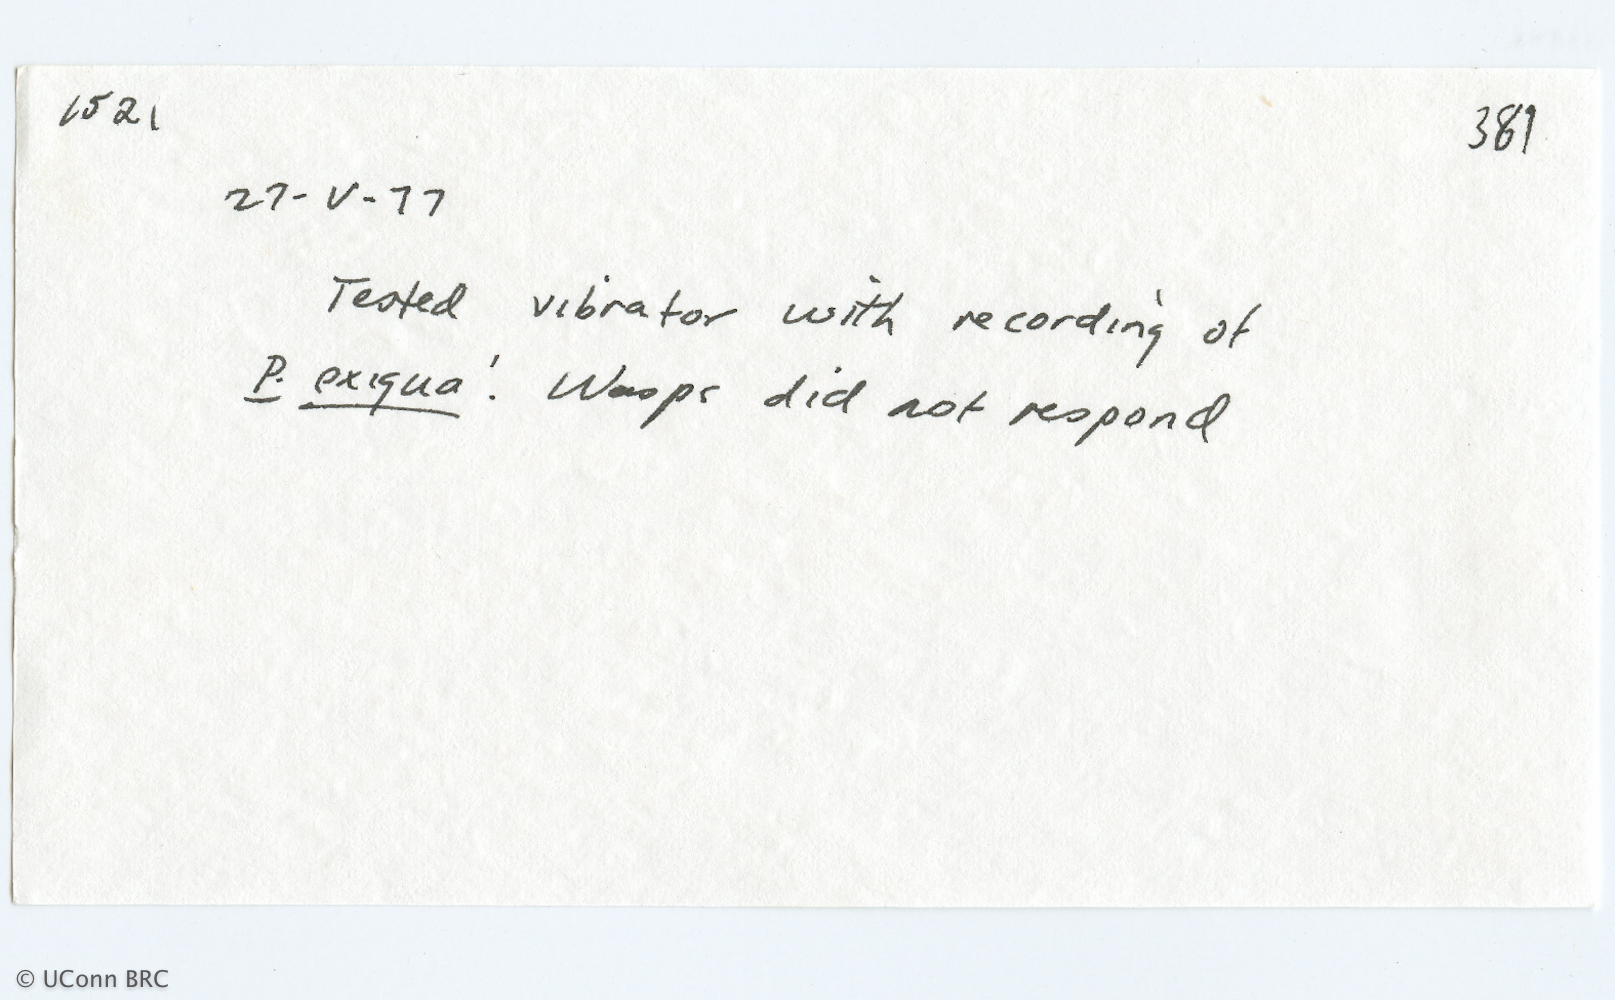 1521
389
27-V-77
Tested vibrator with recording of
P. exiqua'. Wasps did not respond
© UConn BRC